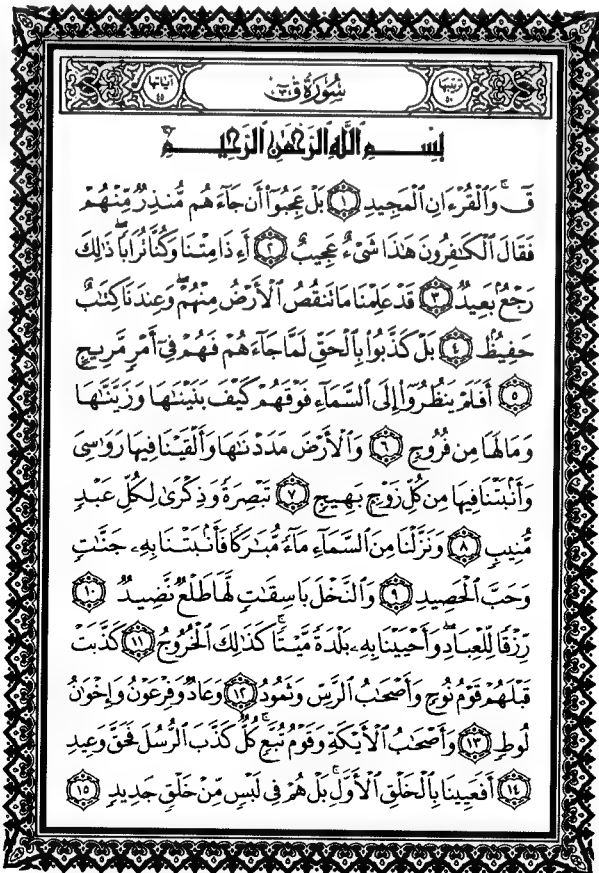 ترتيبها ٥٠ سُورَةُ قٓ آياتها ٤٥
بِسْمِ ٱللَّهِ ٱلرَّحْمَٰنِ ٱلرَّحِيمِ
قٓۚ وَٱلْقُرْءَانِ ٱلْمَجِيدِ ١ بَلْ عَجِبُوٓا۟ أَن جَآءَهُم مُّنذِرٌ مِّنْهُمْ
فَقَالَ ٱلْكَٰفِرُونَ هَٰذَا شَىْءٌ عَجِيبٌ ٢ أَءِذَا مِتْنَا وَكُنَّا تُرَابًا ۖ ذَٰلِكَ
رَجْعٌۢ بَعِيدٌ ٣ قَدْ عَلِمْنَا مَا تَنقُصُ ٱلْأَرْضُ مِنْهُمْ ۖ وَعِندَنَا كِتَٰبٌ
حَفِيظٌۢ ٤ بَلْ كَذَّبُوا۟ بِٱلْحَقِّ لَمَّا جَآءَهُمْ فَهُمْ فِىٓ أَمْرٍ مَّرِيجٍ
٥ أَفَلَمْ يَنظُرُوٓا۟ إِلَى ٱلسَّمَآءِ فَوْقَهُمْ كَيْفَ بَنَيْنَٰهَا وَزَيَّنَّٰهَا
وَمَا لَهَا مِن فُرُوجٍ ٦ وَٱلْأَرْضَ مَدَدْنَٰهَا وَأَلْقَيْنَا فِيهَا رَوَٰسِىَ
وَأَنۢبَتْنَا فِيهَا مِن كُلِّ زَوْجٍۭ بَهِيجٍ ٧ تَبْصِرَةً وَذِكْرَىٰ لِكُلِّ عَبْدٍ
مُّنِيبٍ ٨ وَنَزَّلْنَا مِنَ ٱلسَّمَآءِ مَآءً مُّبَٰرَكًا فَأَنۢبَتْنَا بِهِۦ جَنَّٰتٍ
وَحَبَّ ٱلْحَصِيدِ ٩ وَٱلنَّخْلَ بَاسِقَٰتٍ لَّهَا طَلْعٌ نَّضِيدٌ ١٠
رِّزْقًا لِّلْعِبَادِ ۖ وَأَحْيَيْنَا بِهِۦ بَلْدَةً مَّيْتًا ۚ كَذَٰلِكَ ٱلْخُرُوجُ ١١ كَذَّبَتْ
قَبْلَهُمْ قَوْمُ نُوحٍ وَأَصْحَٰبُ ٱلرَّسِّ وَثَمُودُ ١٢ وَعَادٌ وَفِرْعَوْنُ وَإِخْوَٰنُ
لُوطٍ ١٣ وَأَصْحَٰبُ ٱلْأَيْكَةِ وَقَوْمُ تُبَّعٍ ۚ كُلٌّ كَذَّبَ ٱلرُّسُلَ فَحَقَّ وَعِيدِ
١٤ أَفَعَيِينَا بِٱلْخَلْقِ ٱلْأَوَّلِ ۚ بَلْ هُمْ فِى لَبْسٍ مِّنْ خَلْقٍ جَدِيدٍ ١٥